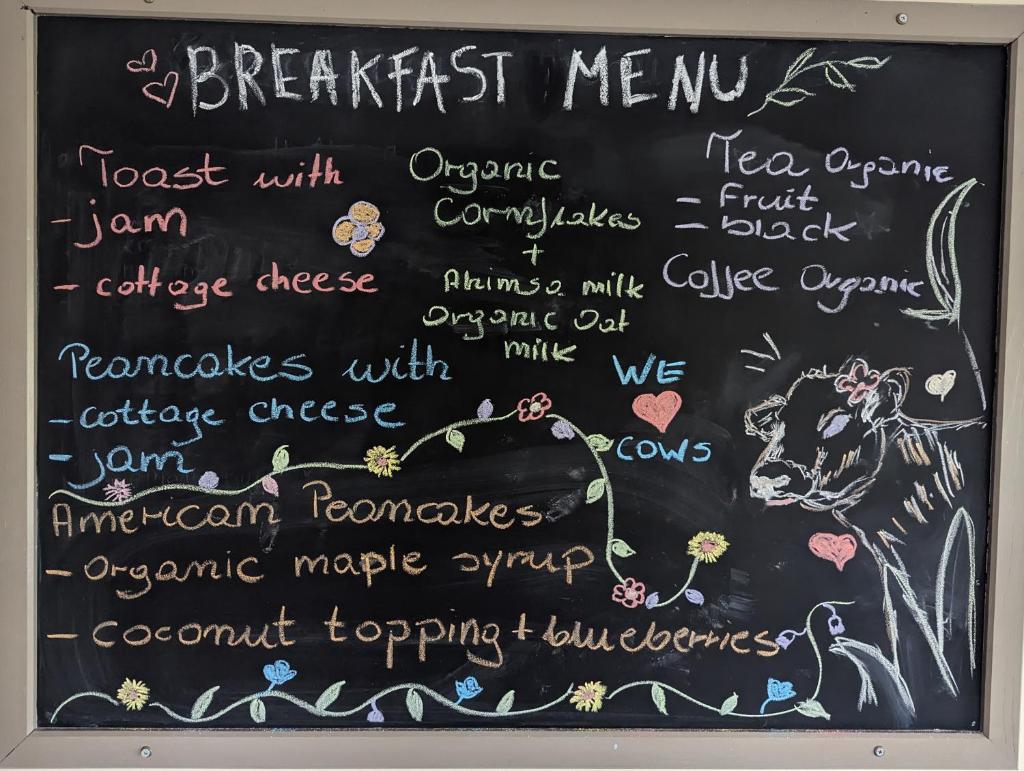 BREAKFAST MENU
Toast with
- jam
- cottage cheese
Peancakes with
- cottage cheese
- jam
American Peancakes
- organic maple syrup
- coconut topping + blueberries
Organic
Cornflakes
+
Ahimsa milk
Organic Oat
milk
Tea Organic
- Fruit
- black
Coffee Organic
WE
COWS